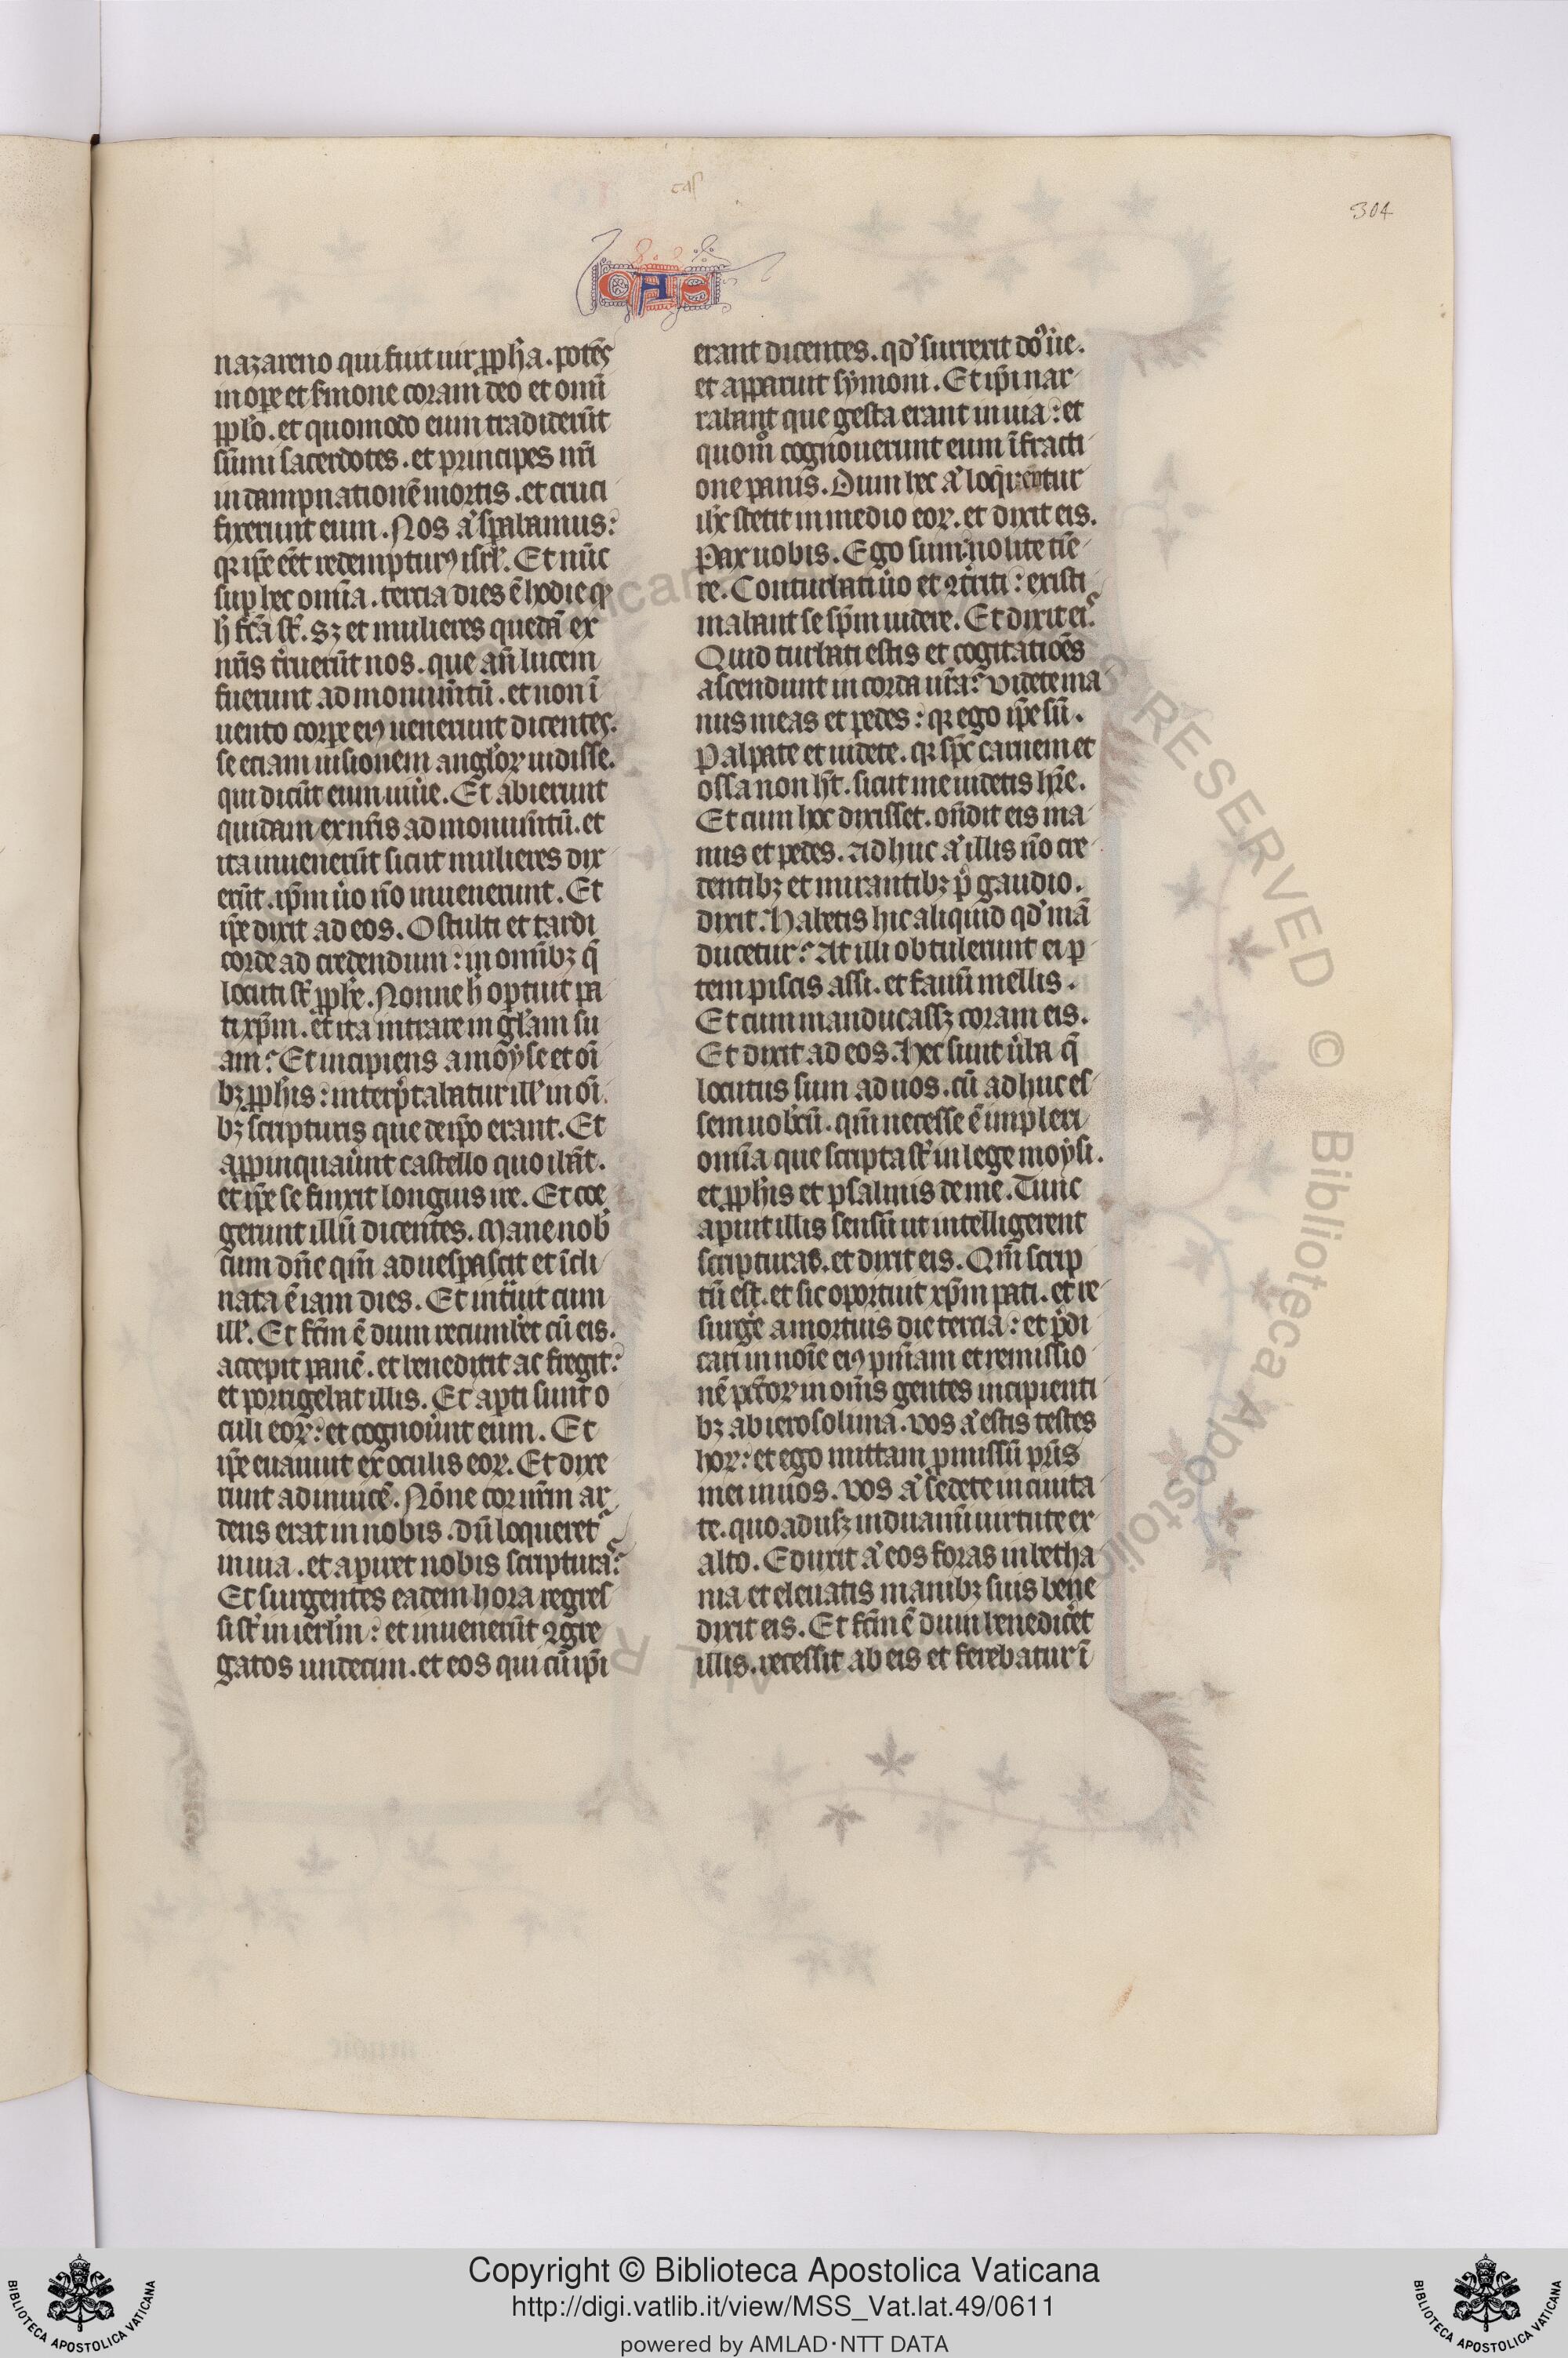 cas
304
CAS
nazareno qui fuit uir ꝓph̄a . potēs
in oꝑe et s̓mone coram deo et om̄i
pp̄lo . et quomodo eum tradiderūt
sūmi sacerdotes . et principes nr̄i
in dampnationē mortis . et cruci
fixerunt eum . Nos aͥ sꝑabamus :
qꝛ ip̄e eēt redempturꝰ isrl̓ . Et nūc
suꝑ hec om̄ia . tercia dies ē hodie qͦ
h̓ fcā st̄ . Sꝫ et mulieres quedā ex
nr̄is t̓ruerūt nos . que an̄ lucem
fuerunt ad monum̄tū . et non ī
uento corꝑe eiꝰ uenerunt dicentes .
se etiam uisionem angl̓oꝝ uidisse .
qui dicūt eum uiu̓e . Et abierunt
quidam ex nr̄is ad monum̄tū . et
ita inuenerūt sicut mulieres dix
erūt . ip̄m u̓o nō inuenerunt . Et
ip̄e dixit ad eos . O stulti et tardi
corde ad credendum : in om̄ibꝫ q̄
locuti st̄ ꝓph̄e . Nonne h̓ oꝑtuit pa
ti xp̄m . et ita intrare in gl̓am su
am ? Et incipiens a moyse et oī
bꝫ ꝓph̄is : interp̄tabatur ill̓ in oī
bꝫ scripturis que de ip̄o erant . Et
aꝓpinquau̓unt castello quo ibāt .
et ip̄e se finxit longius ire . Et coe
gerunt illū dicentes . Mane nob̓
cum dn̄e qm̄ aduesꝑascit et īcli
nata ē iam dies . Et int̓uit cum
ill̓ . Et fcm̄ ē dum recumb̓et cū eis .
accepit panē . et benedixit ac fregit :
et porrigebat illis . Et aꝑti sunt o
culi eoꝝ : et cognou̓unt eum . Et
ip̄e euanuit ex oculis eoꝝ . Et dixe
runt adinuicē . Nōne cor nr̄m ar
dens erat in nobis . dū loqueret᷑
in uia . et aꝑiret nobis scripturas ?
Et surgentes eadem hora regres
si st̄ in ierl̓m : et inuenerūt ꝯgre
gatos undecim . et eos qui cū ip̄i
erant dicentes . qd̓ surrexit dōs ūe .
et apparuit symoni . Et ip̄i nar
rabant que gesta erant in uia : et
quomͦ cognouerunt eum ī fracti
one panis . Dum hec aͥ loquerentur
ih̄c stetit in medio eoꝝ . et dixit eis .
Pax uobis . Ego sum : nolite timē
re . Conturbati u̓o et ꝯt̓riti : existi
mabant se sp̄m uidere . Et dixit eis
Quid turbati estis et cogitatiōes
ascendunt in corda ur̄a ? Videte ma
nus meas et pedes : qꝛ ego ip̄e sū .
Palpate et uidete . qꝛ sp̄c carnem et
ossa non hn̄t . sicut me uidetis hr̄e .
Et cum hoc dixisset . on̄dit eis ma
nus et pedes . Ad huc aͥ illis nō cre
dentibꝫ et mirantibꝫ p̄ gaudio .
dixit . Habetis hic aliquid qd̓ mā
ducetur ? At illi obtulerunt ei ꝑ
tem piscis assi . et fauū mellis .
Et cum manducassꝫ coram eis .
Et dixit ad eos . Hec sunt u̓ba q̄
locutus sum ad uos . cū ad huc es
sem uobcū . qm̄ necesse ē impleri
omīa que scripta st̄ in lege moysi .
et ꝓph̄is et psalmis de me . Tunc
aꝑuit illis sensū ut intelligerent
scripturas . et dixit eis . Qm̄ scrip
tū est . et sic oportuit xp̄m pati . et re
surg̓e a mortuis die tercia : et p̄di
cari in noīe eiꝰ pn̄iam et remissio
nē pc̄cōꝝ in om̄is gentes incipienti
bꝫ ab ierosolima . Vos aͥ estis testes
hoꝝ : et ego mittam ꝓmissū pr̄is
mei in uos . Vos aͥ sedete in ciuita
te . quo adusꝫ induamī uirtute ex
alto . Eduxit aͥ eos foras in betha
nia et eleuatis manibꝫ suis bene
dixit eis . Et fcm̄ ē dum benedic̓et
illis . recessit ab eis et ferebatur ī
Copyright © Biblioteca Apostolica Vaticana
http://digi.vatlib.it/view/MSS_Vat.lat.49/0611
powered by AMLAD·NTT DATA
BIBLIOTECA APOSTOLICA VATICANA
BIBLIOTECA APOSTOLICA VATICANA